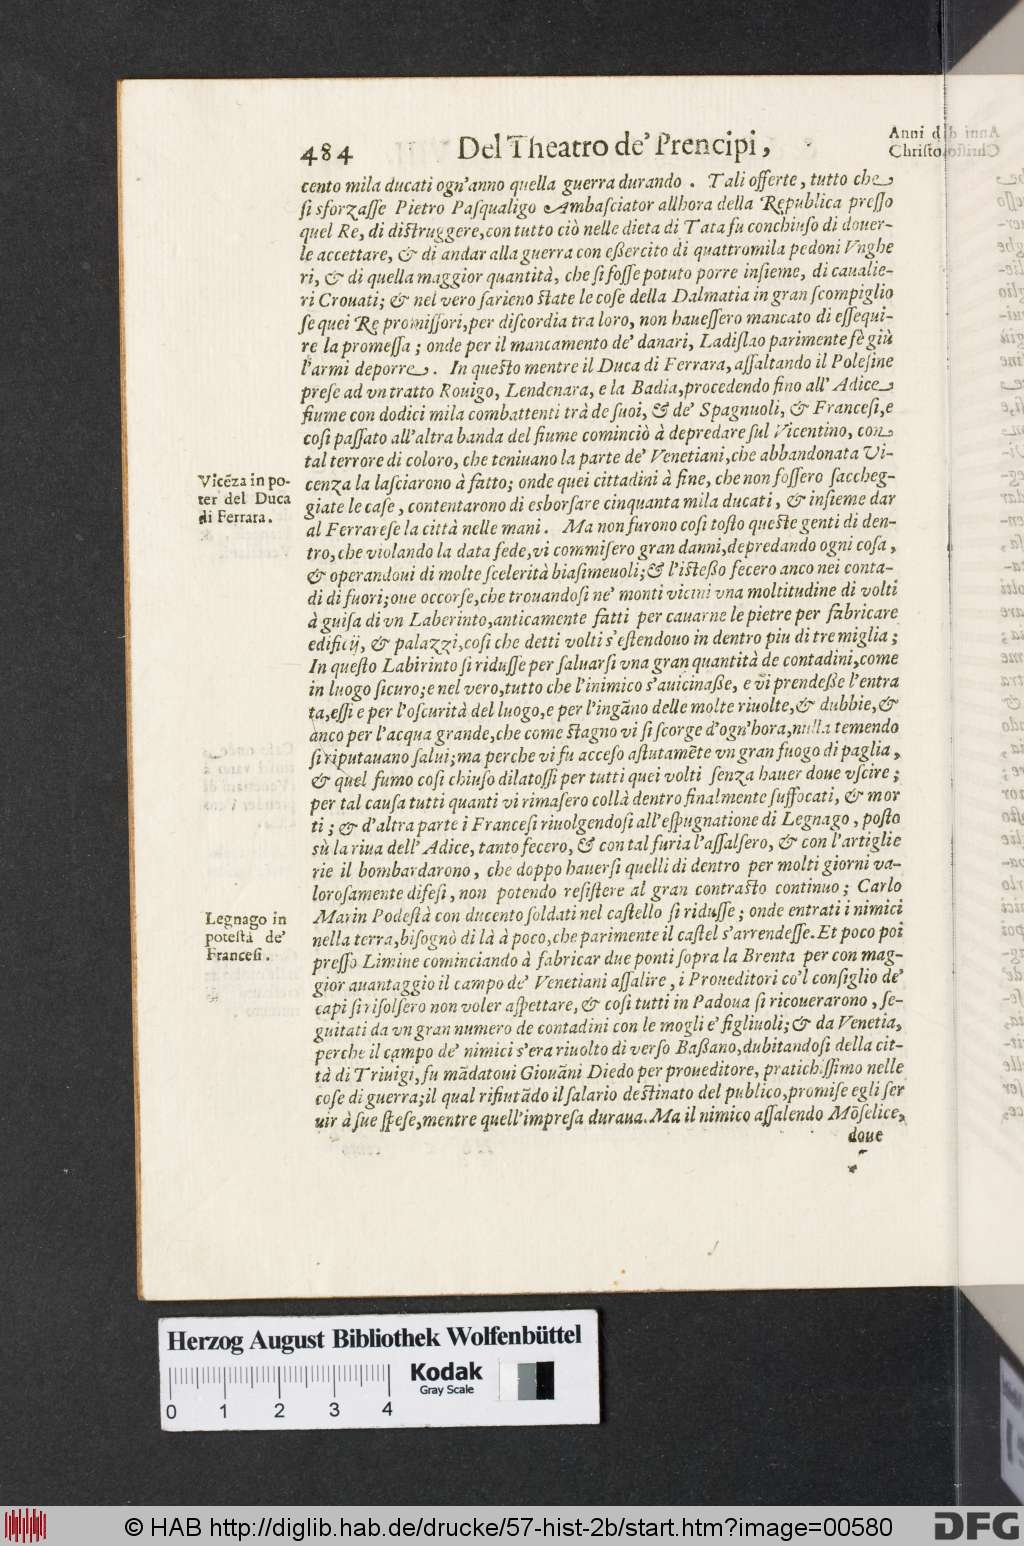 484 Del Theatro de' Prencipi,
Anni di
Christo
cento mila ducati ogn'anno quella guerra durando. Tali offerte, tutto che
ſi sforzaſſe Pietro Paſqualigo Ambaſciator allhora della Republica preſſo
quel Re, di diſtruggere, con tutto ciò nelle dieta di Tata fu conchiuſo di douer-
le accettare, & di andar alla guerra con eßercito di quattromila pedoni Vnghe
ri, & di quella maggior quantità, che ſi foſſe potuto porre inſieme, di caualie-
ri Crouati; & nel vero ſarieno ſtate le coſe della Dalmatia in gran ſcompiglio
ſe quei Re promiſſori, per diſcordia tra loro, non haueſſero mancato di eſſequi-
re la promeſſa; onde per il mancamento de' danari, Ladiſlao parimente fè giù
l'armi deporre. In queſto mentre il Duca di Ferrara, aſſaltando il Poleſine
preſe ad vn tratto Rouigo, Lendenara, e la Badia, procedendo fino all' Adice
fiume con dodici mila combattenti trà de ſuoi, & de' Spagnuoli, & Franceſi, e
coſi paſſato all'altra banda del fiume cominciò à depredare ſul Vicentino, con
tal terrore di coloro, che teniuano la parte de' Venetiani, che abbandonata Vi-
cenza la laſciarono à fatto; onde quei cittadini à fine, che non foſſero ſaccheg-
giate le caſe, contentarono di esborſare cinquanta mila ducati, & inſieme dar
al Ferrareſe la città nelle mani. Ma non furono coſi toſto queſte genti di den-
tro, che violando la data fede, vi commiſero gran danni, depredando ogni coſa,
& operandoui di molte ſcelerità biaſimeuoli; & l'iſteßo fecero anco nei conta-
di di fuori; oue occorſe, che trouandoſi ne' monti vicini vna moltitudine di volti
à guiſa di vn Laberinto, anticamente fatti per cauarne le pietre per fabricare
edificij, & palazzi, coſi che detti volti s'eſtendouo in dentro piu di tre miglia;
In queſto Labirinto ſi riduſſe per ſaluarſi vna gran quantità de contadini, come
in luogo ſicuro; e nel vero, tutto che l'inimico s'auicinaße, e vi prendeße l'entra
ta, eſſi e per l'oſcurità del luogo, e per l'ingāno delle molte riuolte, & dubbie, &
anco per l'acqua grande, che come ſtagno vi ſi ſcorge d'ogn'hora, nulla temendo
ſi riputauano ſalui; ma perche vi fu acceſo aſtutamēte vn gran fuogo di paglia,
& quel fumo coſi chiuſo dilatoſſi per tutti quei volti ſenza hauer doue vſcire;
per tal cauſa tutti quanti vi rimaſero collà dentro finalmente ſuffocati, & mor
ti; & d'altra parte i Franceſi riuolgendoſi all'eſpugnatione di Legnago, poſto
sù la riua dell' Adice, tanto fecero, & con tal furia l'aſſalſero, & con l'artiglie
rie il bombardarono, che doppo hauerſi quelli di dentro per molti giorni va-
loroſamente difeſi, non potendo reſiſtere al gran contraſto continuo; Carlo
Marin Podeſtà con ducento ſoldati nel caſtello ſi riduſſe; onde entrati i nimici
nella terra, biſognò di là à poco, che parimente il caſtel s'arrendeſſe. Et poco poi
preſſo Limine cominciando à fabricar due ponti ſopra la Brenta per con mag-
gior auantaggio il campo de' Venetiani aſſalire, i Proueditori co'l conſiglio de'
capi ſi riſolſero non voler aſpettare, & coſi tutti in Padoua ſi ricouerarono, ſe-
guitati da vn gran numero de contadini con le mogli e' figliuoli; & da Venetia,
perche il campo de' nimici s'era riuolto di verſo Baßano, dubitandoſi della cit-
tà di Triuigi, fu mādatoui Giouāni Diedo per proueditore, pratichiſſimo nelle
coſe di guerra; il qual rifiutādo il ſalario deſtinato del publico, promiſe egli ſer
uir à ſue ſpeſe, mentre quell'impreſa duraua. Ma il nimico aſſalendo Mōſelice,
doue
Vicēza in po-
ter del Duca
di Ferrara.
Legnago in
poteſtà de'
Franceſi.
Herzog August Bibliothek Wolfenbüttel
0 1 2 3 4
Kodak
Gray Scale
© HAB http://diglib.hab.de/drucke/57-hist-2b/start.htm?image=00580
DFG